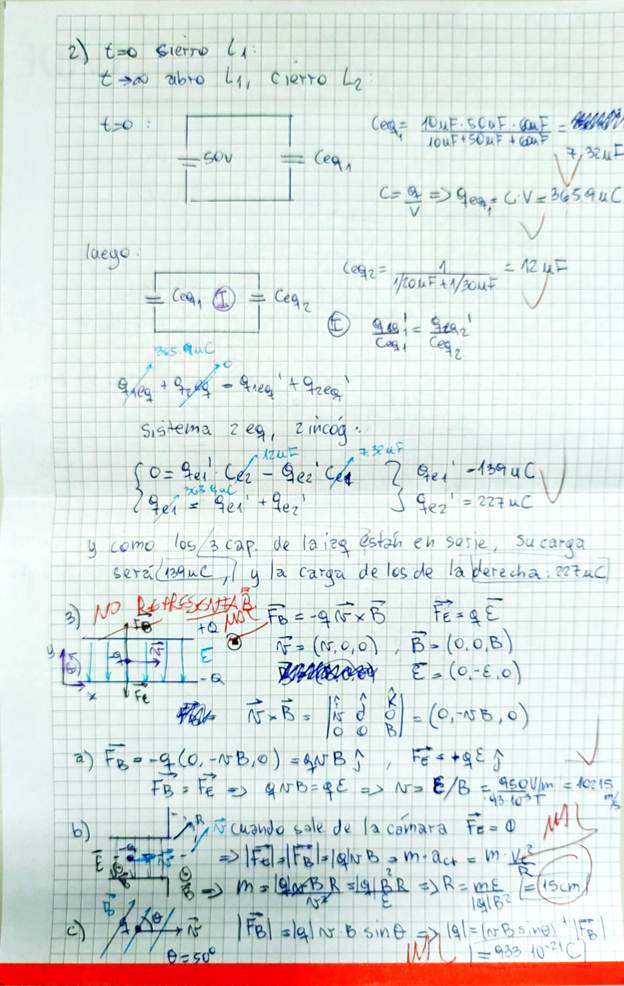 2) t=0 sierro L1:
t→∞ abro L1, cierro L2
t=0 :
50V Ceq1
Ceq1 = 10uF·50uF·60uF / 10uF+50uF+60uF =
7,32uF
C = q/V => qeq1 = C·V = 365.9uC
luego:
Ceq1 I Ceq2
Ceq2 = 1 / 1/20uF+1/30uF = 12uF
I qeq1'/Ceq1 = qeq2'/Ceq2
365.9uC 0
q1eq + q2eq = q1eq' + q2eq'
Sistema 2 eq, 2 incóg.
12uF 7.32uF
0 = qe1' Ce2 - qe2' Ce1 qe1' = 139uC
365.9uC
qe1 = qe1' + qe2' qe2' = 227uC
y como los 3 cap. de la izq están en serie, su carga
será 139uC, y la carga de los de la derecha: 227uC
3) NO REPRESENTA B⃗
F⃗B +Q MAL F⃗B = -q v⃗ x B⃗ F⃗E = q E⃗
y -q v⃗ E v⃗ = (v,0,0) , B⃗ = (0,0,B)
x F⃗E -Q E⃗ = (0,-E,0)
v⃗ x B⃗ = | î ĵ k̂ | v 0 0 | 0 0 B | = (0,-vB,0)
a) F⃗B = -q(0,-vB,0) = qvB ĵ , F⃗E = +qE ĵ
F⃗B = F⃗E => qvB = qE => v = E/B = 950V/m / 93·10⁻³T = 10215 m/s
b) R v⃗ cuando sale de la cámara F⃗E = 0 MAL
E⃗ B⃗ => |F⃗E| = |F⃗B| = |q|vB = m·act = m·v²/R
=> m = |q|vBR/v² = |q|B²R/E => R = mE/|q|B² = 15cm
c) B⃗ q θ v⃗ |F⃗B| = |q| v·B sinθ => |q| = (vB sinθ)⁻¹ |F⃗B|
θ=50° MAL = 933·10⁻²¹ C